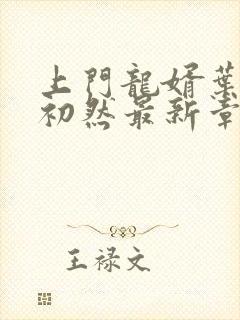 上門龍婿葉
初然最新章
王禄文